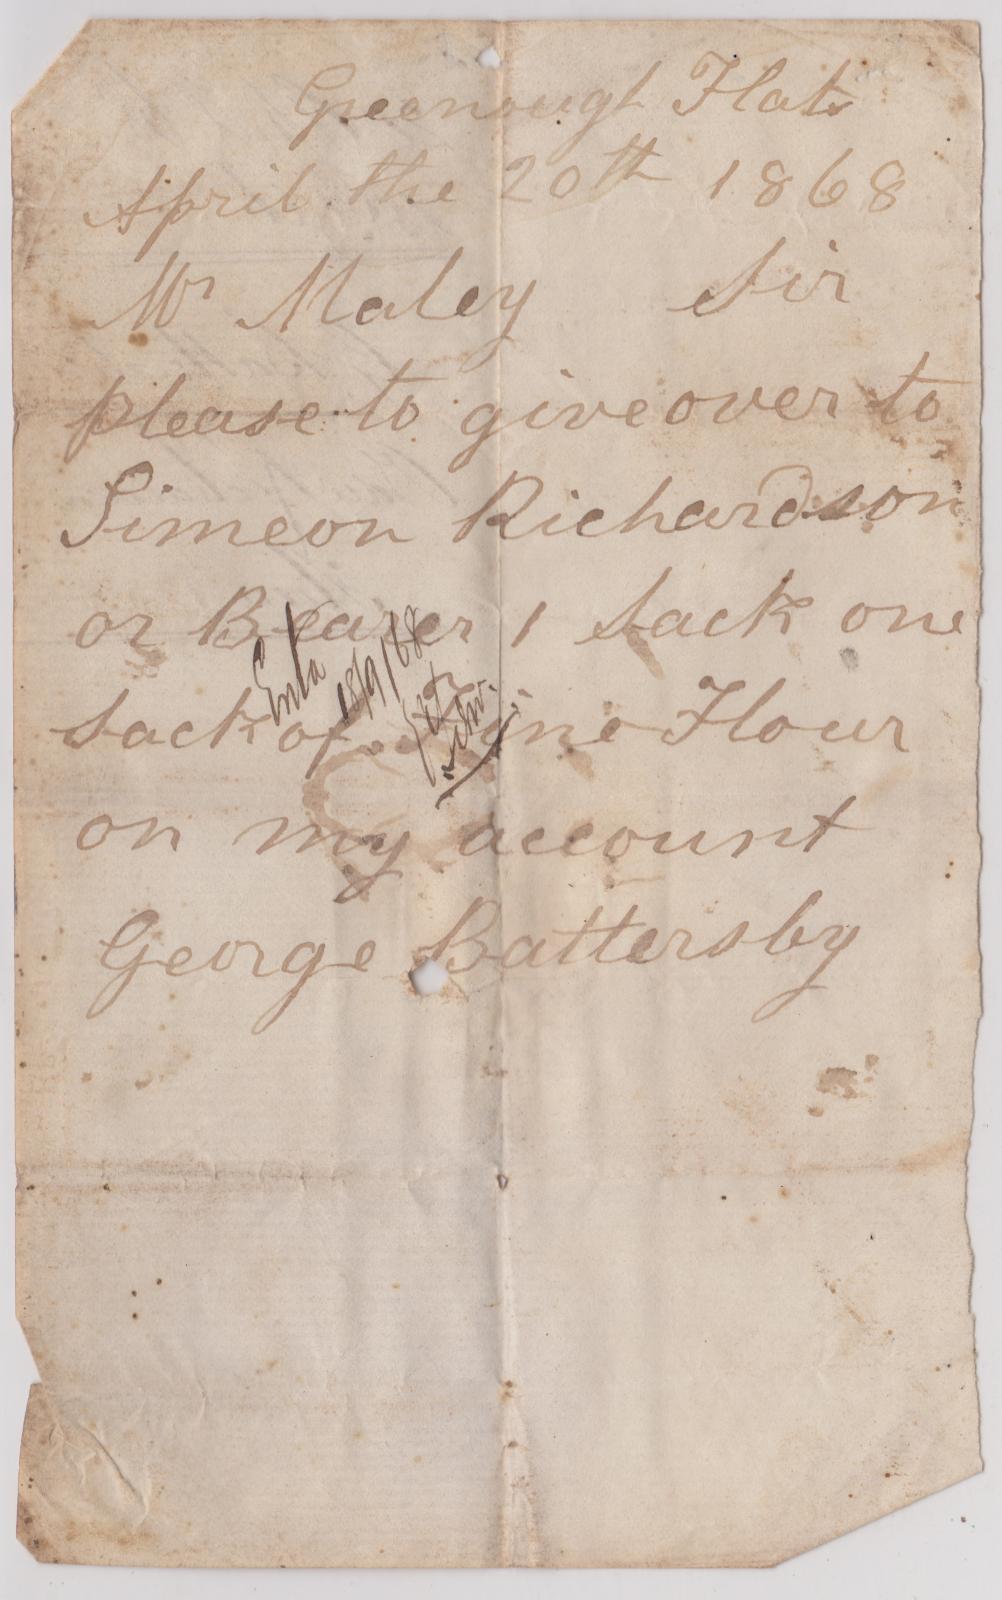 Greenough Flats
April the 20th 1868
Mr Maley Sir
please to give over to
Simeon Richardson
or Bearer 1 Sack one
Sack of Fine Flour
on my account
George Battersby
Entd
18/9/68